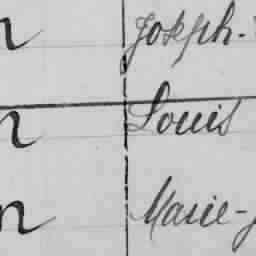 n Joseph-
n Louis
n Marie-J